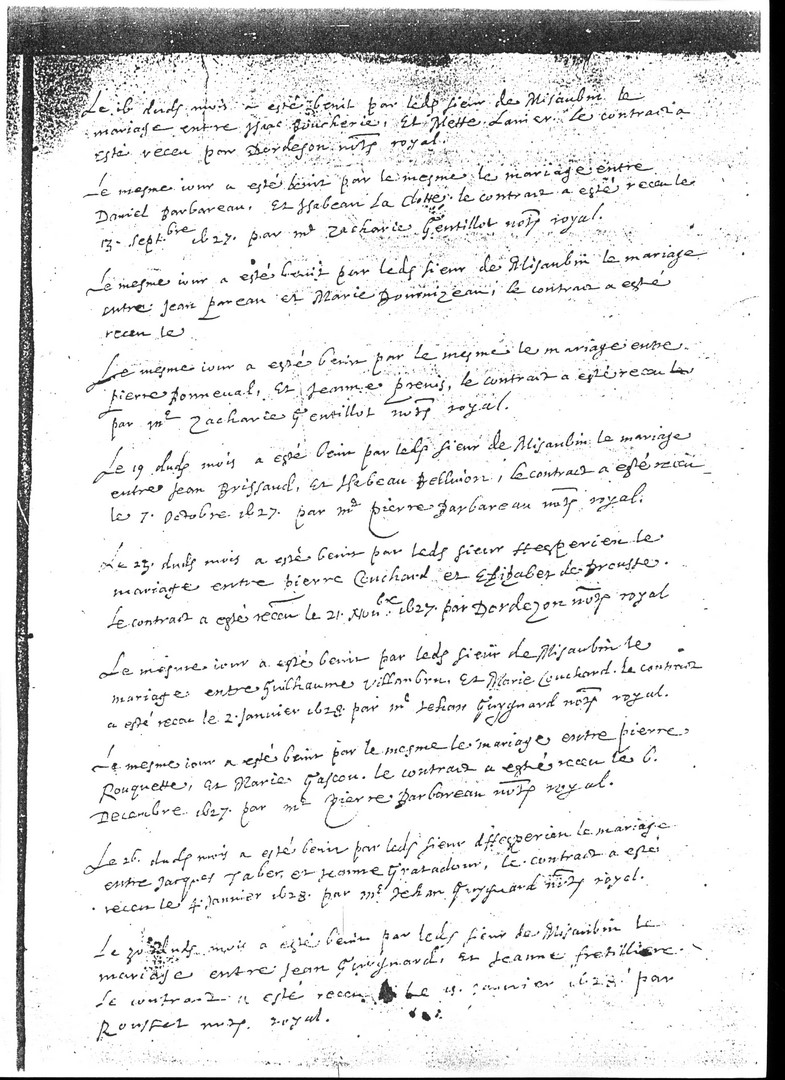 Le 16 dudt mois a esté benit par ledt sieur de Misaubin le
mariage entre Isaac Boucherie, Et Nette Lanier. Le contract a
esté receu par Dordezon notre royal.
Le mesme iour a esté benit par le mesme le mariage entre
Daniel Barbareau, Et Isabeau La Clotte. le contract a esté receu le
13. Septbre 1627. par me Zacharie Gentillot notre royal.
Le mesme iour a esté benit par ledt sieur de Misaubin le mariage
entre Jean pareau et Marie Dournizeau, le contract a esté
receu le
Le mesme iour a esté benit par le mesme le mariage entre
pierre Bonneval, Et Jeanne prenis, le contract a esté receu le
par me Zacharie Gentillot notre royal.
Le 19 dudt mois a esté benit par ledt sieur de Misaubin le mariage
entre Jean Brissaud, Et Isabeau Bellivion, le contract a esté receu
le 7. Octobre 1627. par me Pierre Barbareau notre royal.
Le 23. dudt mois a esté benit par ledt sieur Hesperien le
mariage entre pierre Couchard et Elizabet de Brousse.
Le contract a esté receu le 21. Novbre 1627. par Dordezon notre royal
Le mesme iour a esté benit par ledt sieur de Misaubin le
mariage entre Guilhaume Villambru, Et Marie Couchard. le contract
a esté receu le 2. Janvier 1628. par me Jehan Guygnard notre royal.
Le mesme iour a esté benit par le mesme le mariage entre pierre
Rouquette, Et Marie Gascou. le contract a esté receu le 6.
Decembre 1627. par me Pierre Barbareau notre royal.
Le 26. dudt mois a esté benit par ledt sieur d'Hesperien le mariage
entre Jacques Taber, et Jeanne Gratadour, le contract a esté
receu le 4. Janvier 1628. par me Jehan Guygnard notre royal.
Le 30 dudt mois a esté benit par ledt sieur de Misaubin le
mariage entre Jean Guygnard, Et Jeanne fretilliere.
Le contract a esté receu Le Janvier 1628. par
Rousset notre royal.